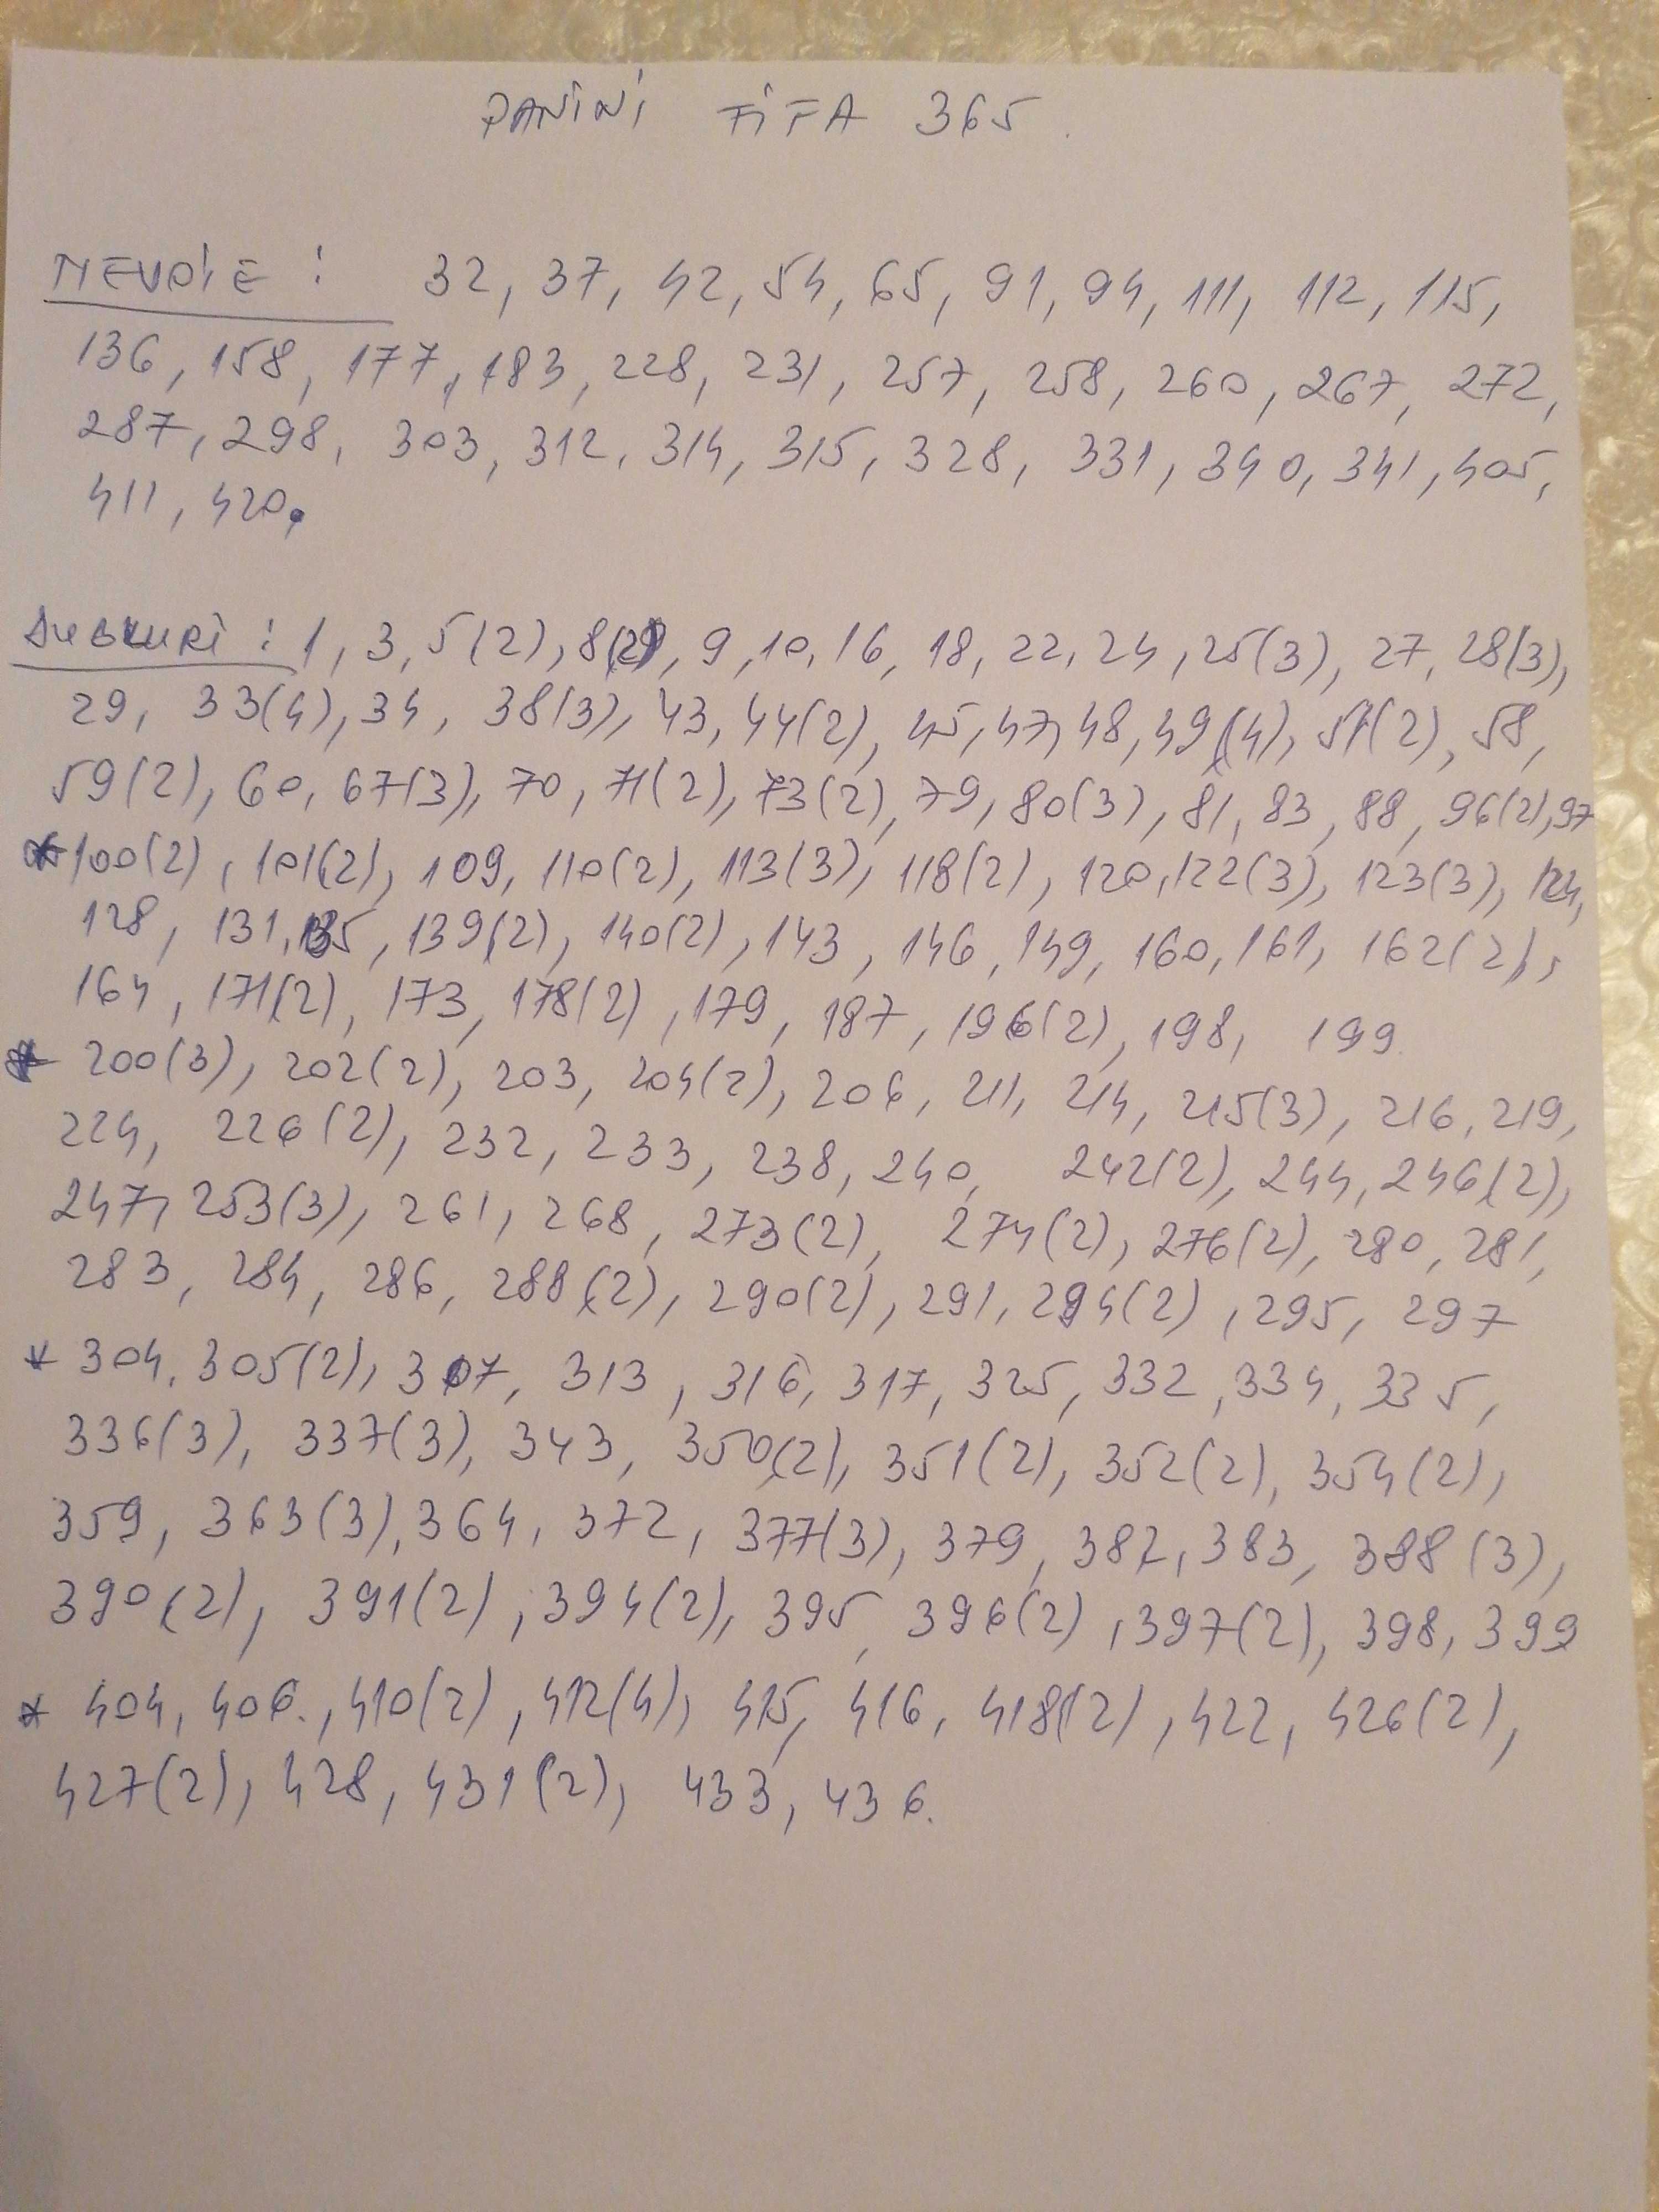 PANINI FIFA 365.
NEVOIE : 32, 37, 42, 54, 65, 91, 94, 111, 112, 115,
136, 158, 177, 183, 228, 231, 257, 258, 260, 267, 272,
287, 298, 303, 312, 314, 315, 328, 331, 340, 341, 405,
411, 420.
DUBLURI : 1, 3, 5(2), 8(2), 9, 10, 16, 18, 22, 24, 25(3), 27, 28(3),
29, 33(4), 34, 38(3), 43, 44(2), 45, 47, 48, 49(4), 57(2), 58,
59(2), 60, 67(3), 70, 71(2), 73(2), 79, 80(3), 81, 83, 88, 96(2), 97
* 100(2), 101(2), 109, 110(2), 113(3), 118(2), 120, 122(3), 123(3), 124,
128, 131, 135, 139(2), 140(2), 143, 146, 149, 160, 161, 162(2),
164, 171(2), 173, 178(2), 179, 187, 196(2), 198, 199.
* 200(3), 202(2), 203, 204(2), 206, 211, 214, 215(3), 216, 219,
224, 226(2), 232, 233, 238, 240, 242(2), 244, 246(2),
247, 253(3), 261, 268, 273(2), 274(2), 276(2), 280, 281,
283, 284, 286, 288(2), 290(2), 291, 294(2), 295, 297
* 304, 305(2), 307, 313, 316, 317, 325, 332, 334, 335,
336(3), 337(3), 343, 350(2), 351(2), 352(2), 354(2),
359, 363(3), 364, 372, 377(3), 379, 382, 383, 388(3),
390(2), 391(2), 394(2), 395, 396(2), 397(2), 398, 399
* 404, 406., 410(2), 412(4), 415, 416, 418(2), 422, 426(2),
427(2), 428, 431(2), 433, 436.